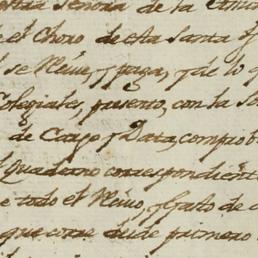 Señora de la
e el Choro de esta Santa
se lleva, y paga, y de lo q
Colegiales, presento, con la
de Cargo y Data, comprob
Quaderno correspondient
e todo el
que corre desde primero